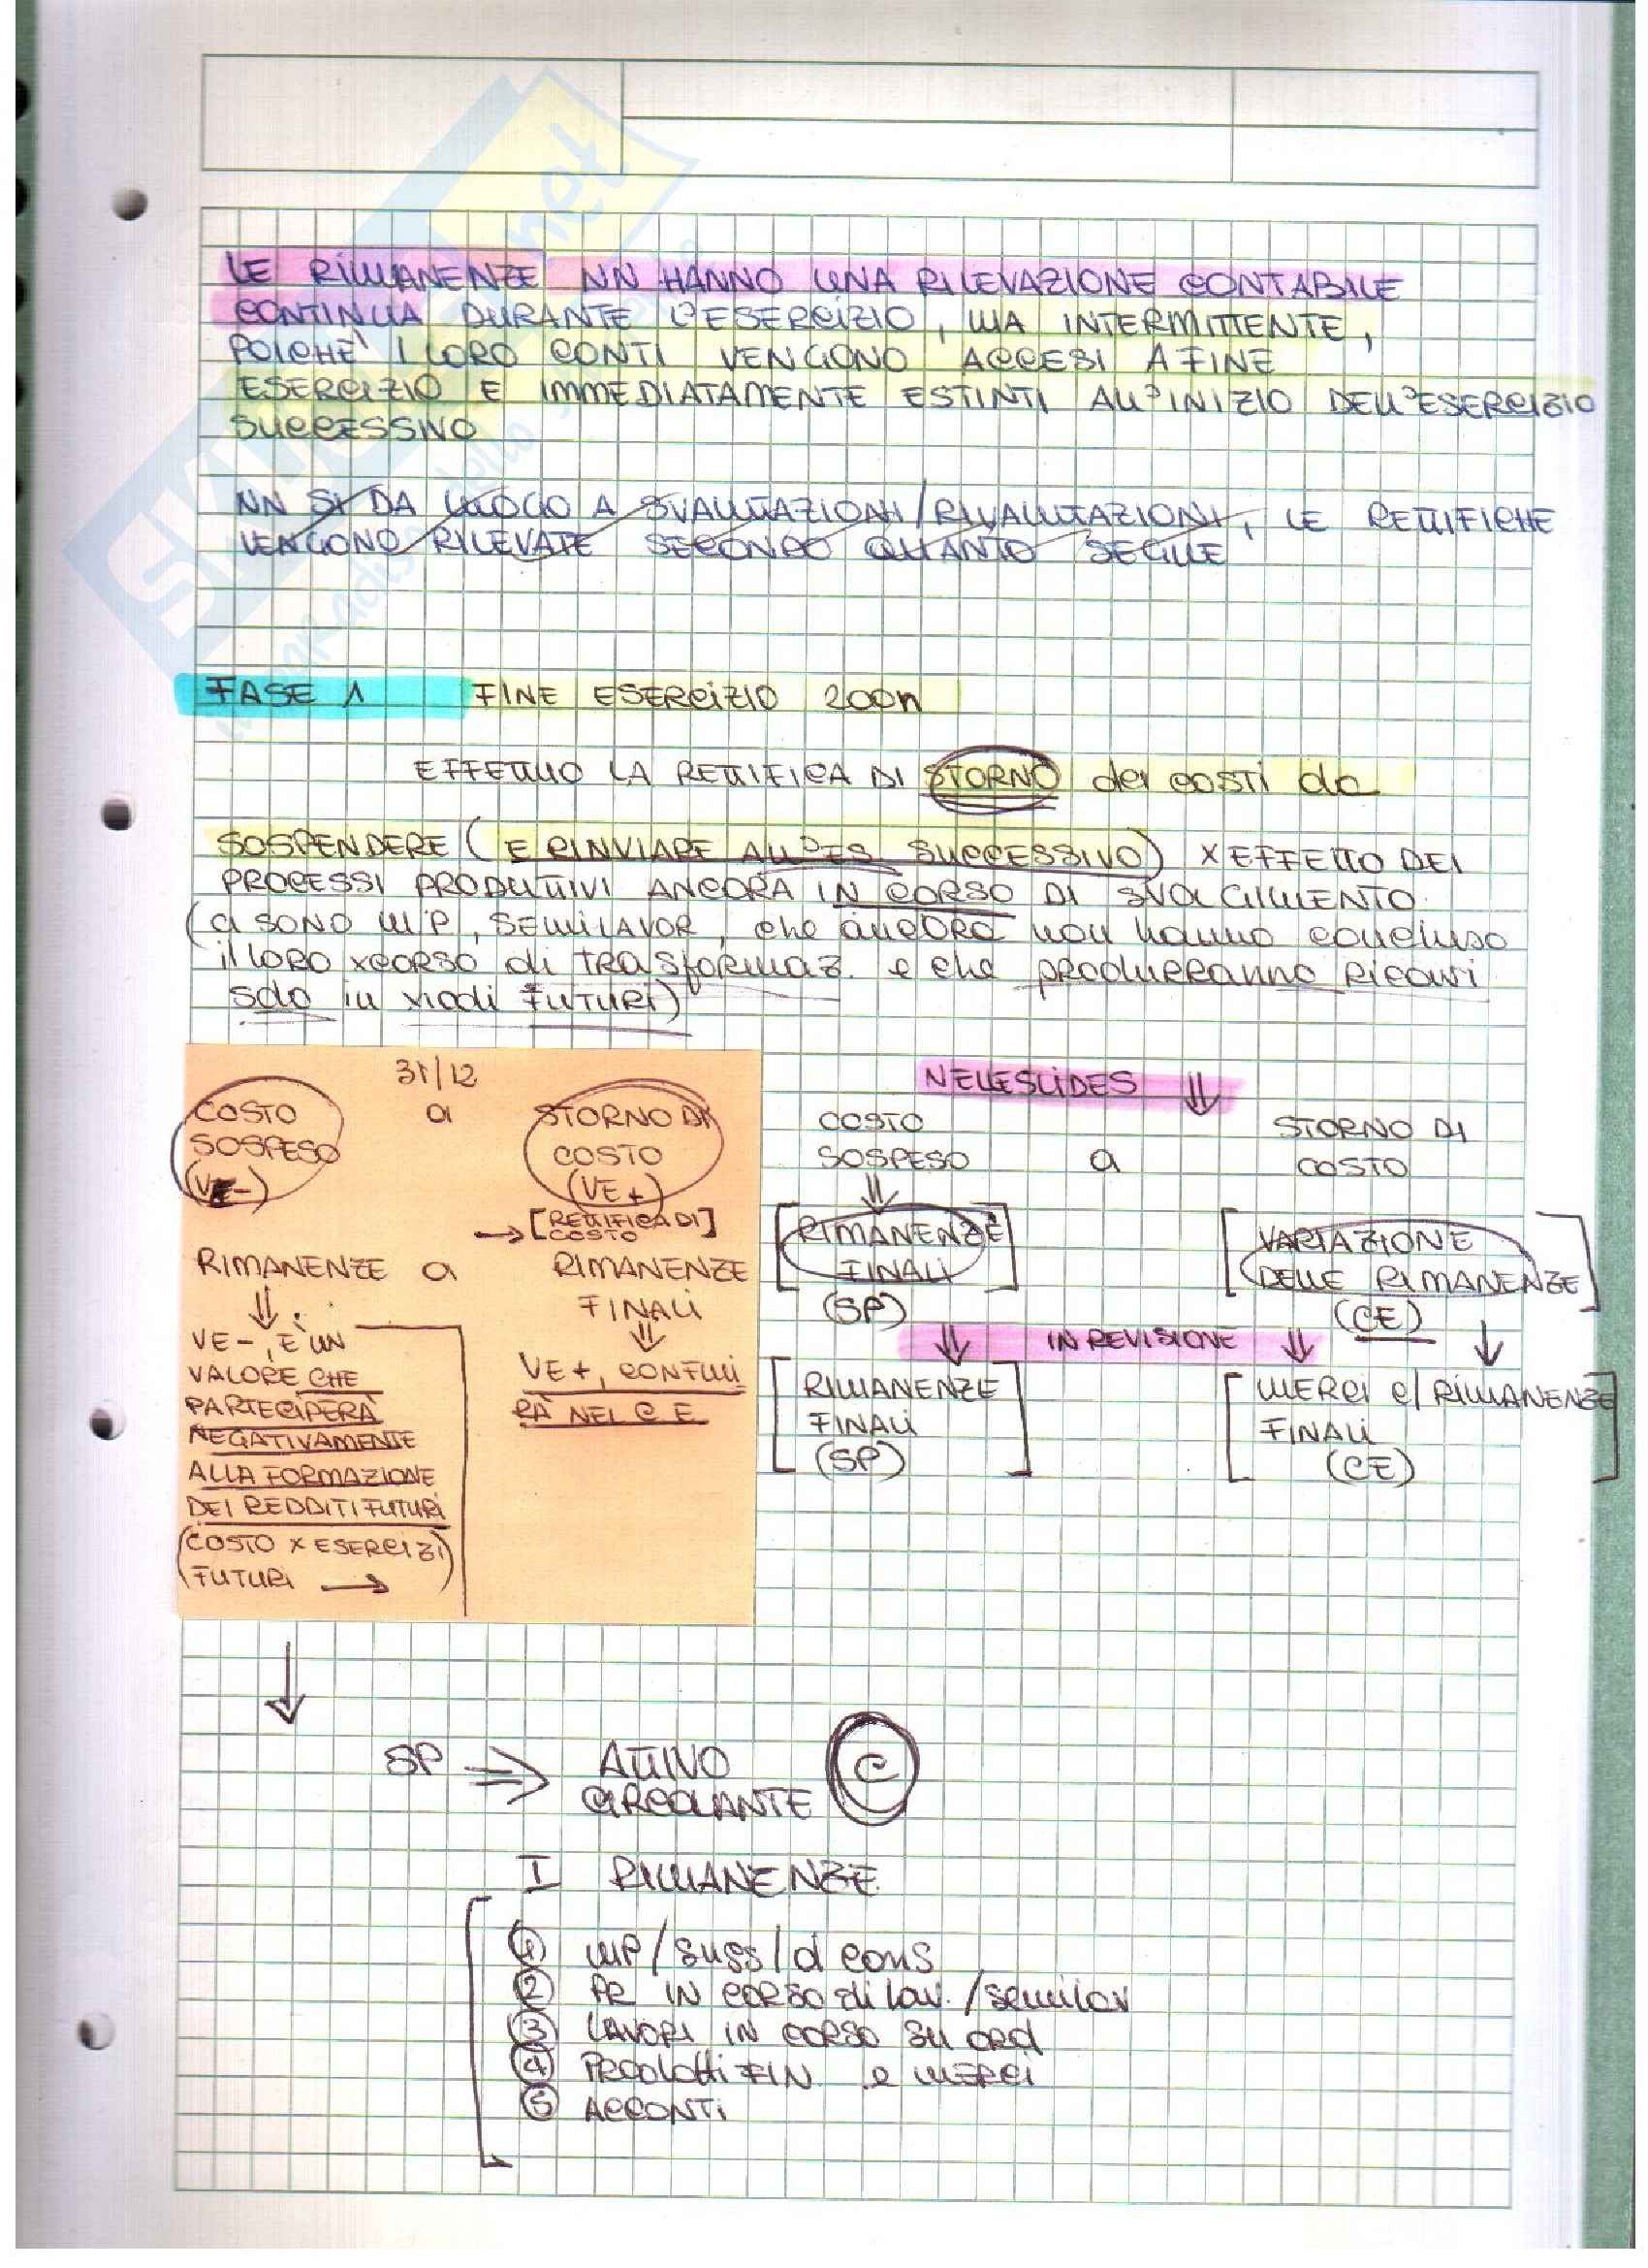 LE RIMANENZE NN HANNO UNA RILEVAZIONE CONTABILE
CONTINUA DURANTE L'ESERCIZIO, MA INTERMITTENTE,
POICHE' I LORO CONTI VENGONO ACCESI A FINE
ESERCIZIO E IMMEDIATAMENTE ESTINTI ALL'INIZIO DELL'ESERCIZIO
SUCCESSIVO
NN SI DA LUOGO A SVALUTAZIONI/RIVALUTAZIONI, LE RETTIFICHE
VENGONO RILEVATE SECONDO QUANTO SEGUE
FASE 1 FINE ESERCIZIO 200n
EFFETTUO LA RETTIFICA DI STORNO dei costi da
SOSPENDERE (E RINVIARE ALL'ES SUCCESSIVO) X EFFETTO DEI
PROCESSI PRODUTTIVI ANCORA IN CORSO DI SVOLGIMENTO
(CI SONO MP, SEMILAVOR, che ancora non hanno concluso
il LORO xcorso di trasformaz. e che produrranno ricavi
solo in xiodi FUTURI)
31/12
COSTO SOSPESO (VE-) a STORNO DI COSTO (VE+)
→ [RETTIFICA DI COSTO]
RIMANENZE a RIMANENZE FINALI
VE-, È UN
VALORE CHE
PARTECIPERÀ
NEGATIVAMENTE
ALLA FORMAZIONE
DEI REDDITI FUTURI
(COSTO X ESERCIZI
FUTURI →)
VE+, CONFLUI
RÀ NEL CE
NELLE SLIDES
COSTO SOSPESO a STORNO DI COSTO
[RIMANENZE FINALI] (SP)
[VARIAZIONE DELLE RIMANENZE] (CE)
IN REVISIONE
[RIMANENZE FINALI (SP)]
[MERCI C/ RIMANENZE FINALI (CE)]
SP ⇒ ATTIVO CIRCOLANTE C
I RIMANENZE
1 MP/suss/d cons
2 PR IN CORSO di lav. /semilav
3 LAVORI IN CORSO SU ORD
4 Prodotti FIN e MERCI
5 ACCONTI